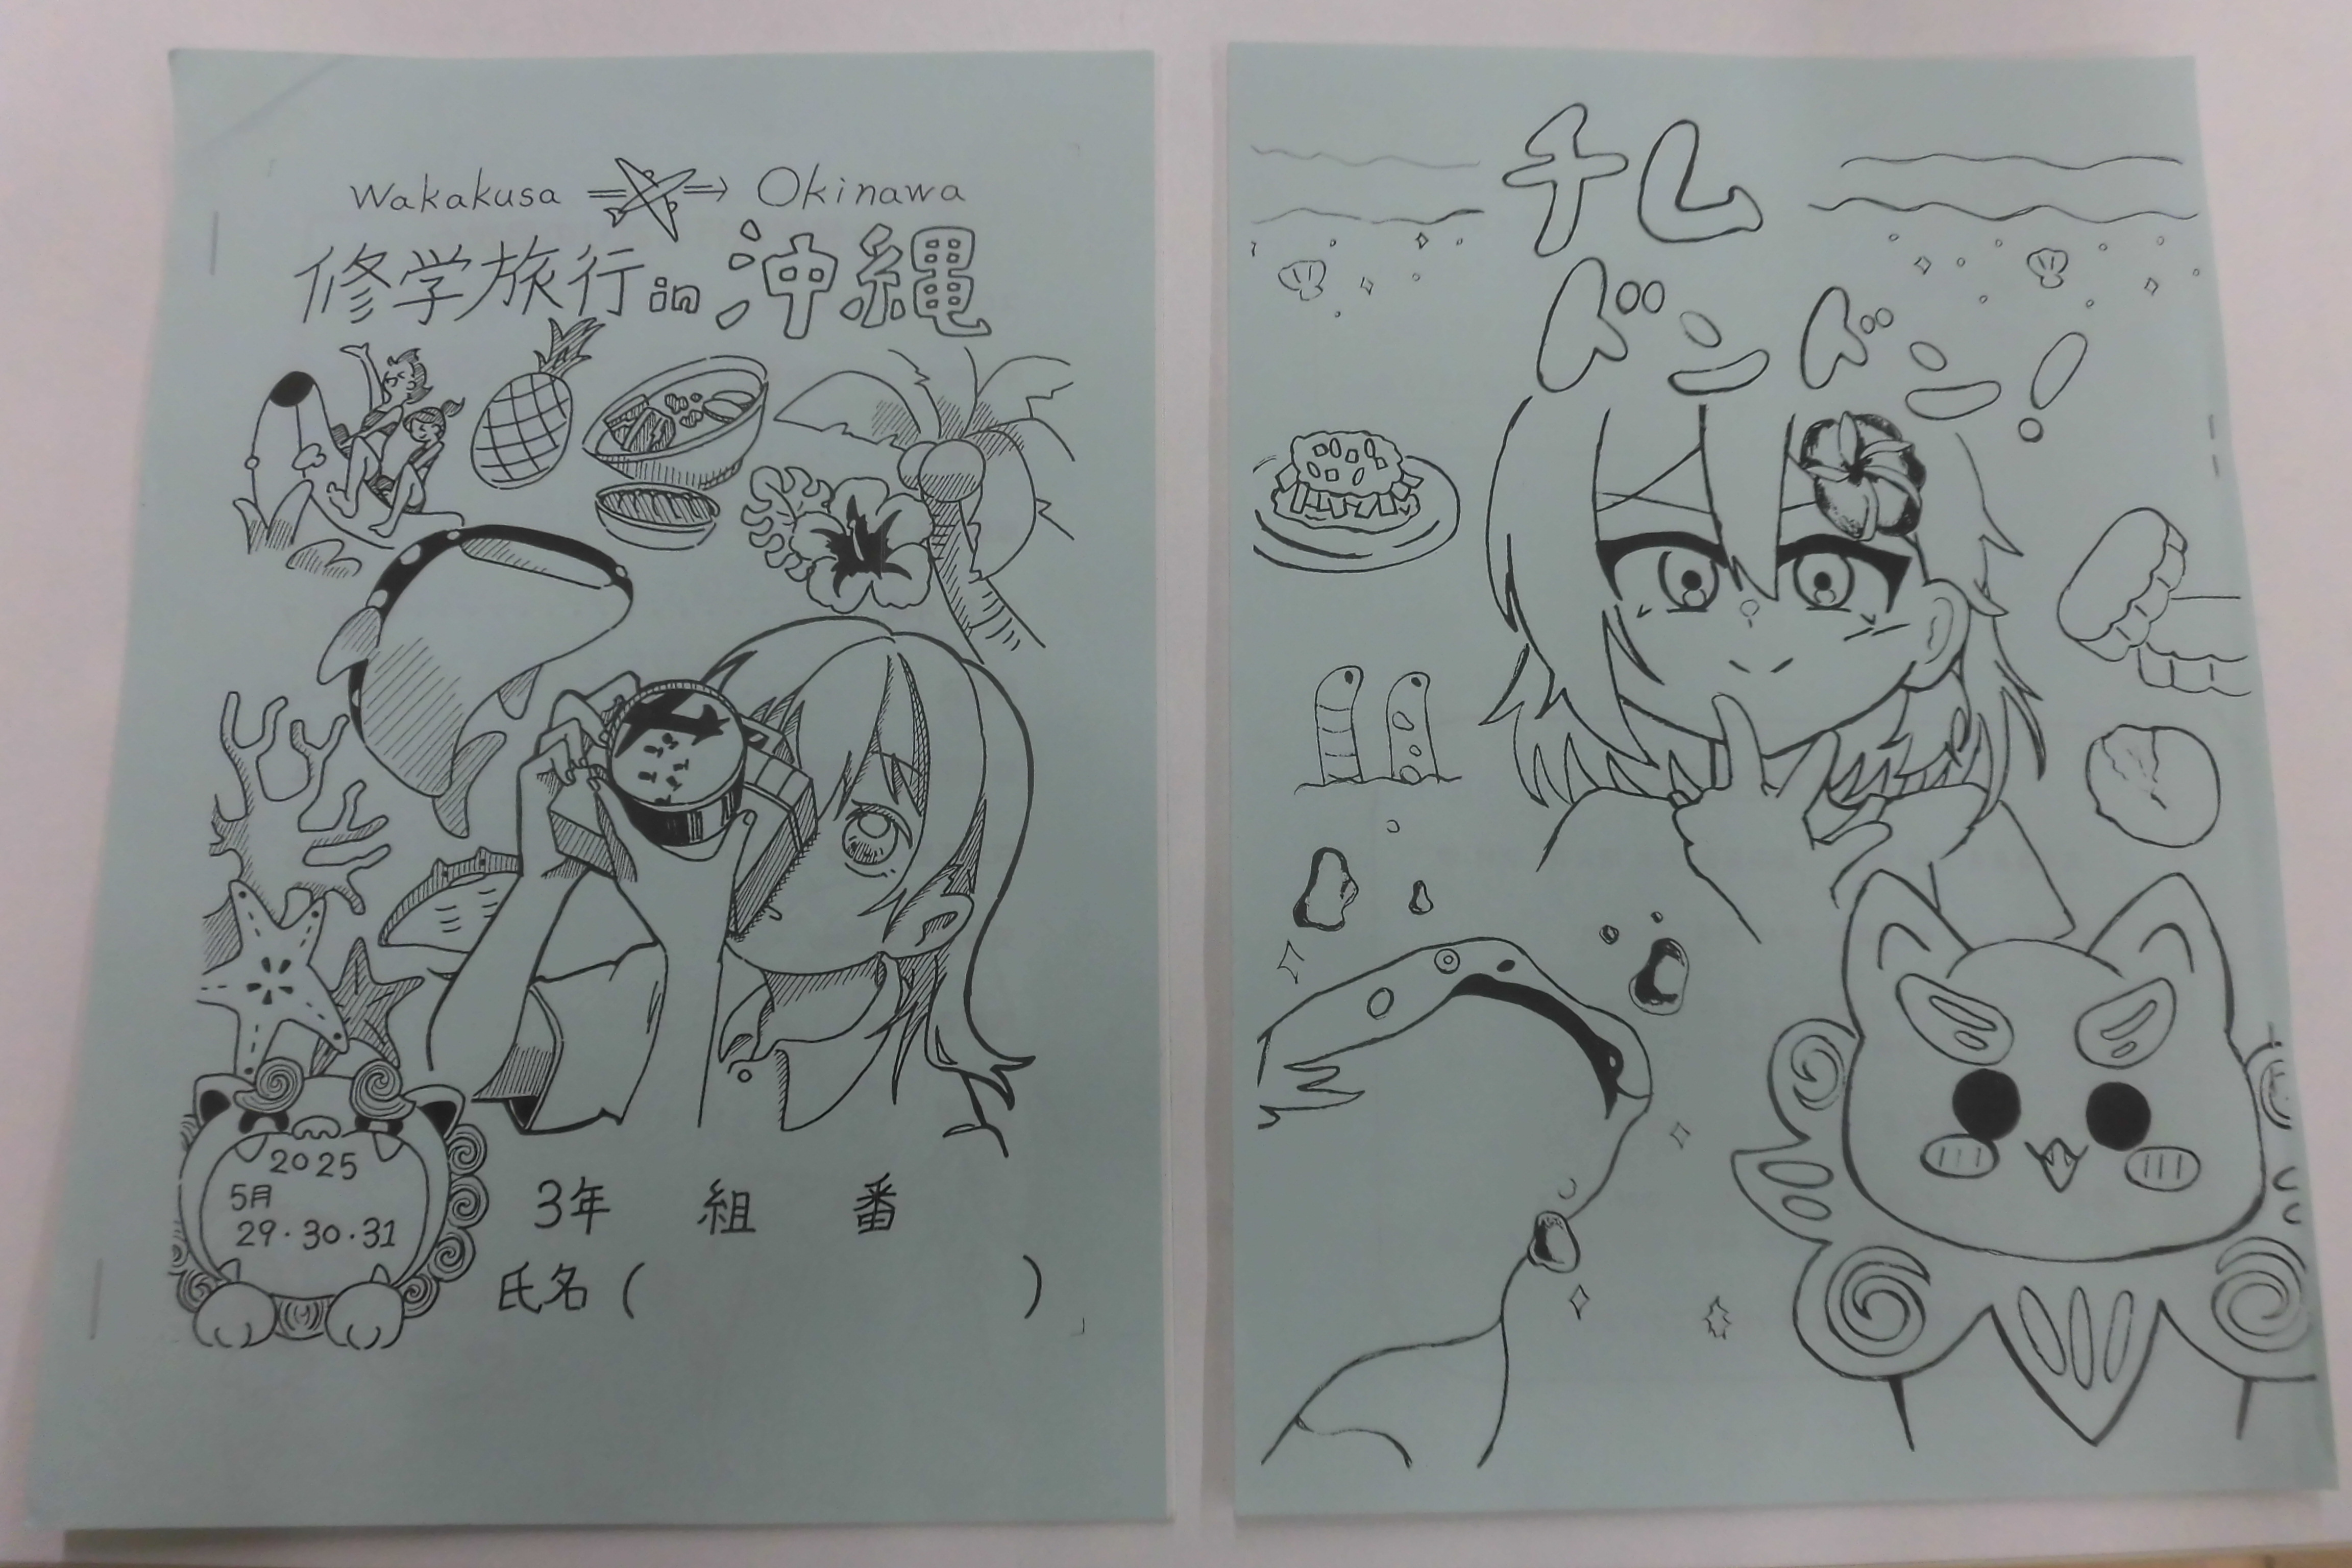 Wakakusa ⇒ Okinawa
修学旅行 in 沖縄
2025
5月
29・30・31
3年 組 番
氏名 ( )
チム
ドンドン!